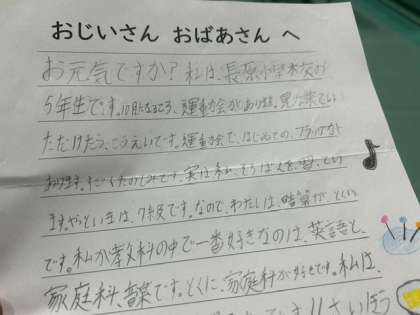 おじいさん おばあさん へ
お元気ですか?私は、長原小学校の
5年生です。10月になるころ、運動会があります。見に来てい
ただけたら、こうえいです。運動会で、はじめての、フラッグなど
あります。すごくたのしみです。実は私、そろばんを、習
ます。やっといまは、7級です。なので、わたしは、暗算が、とくい
です。私が教科の中で一番好きなのは、英語と、
家庭科、音楽です。とくに、家庭科が好きです。私は、
さいほう